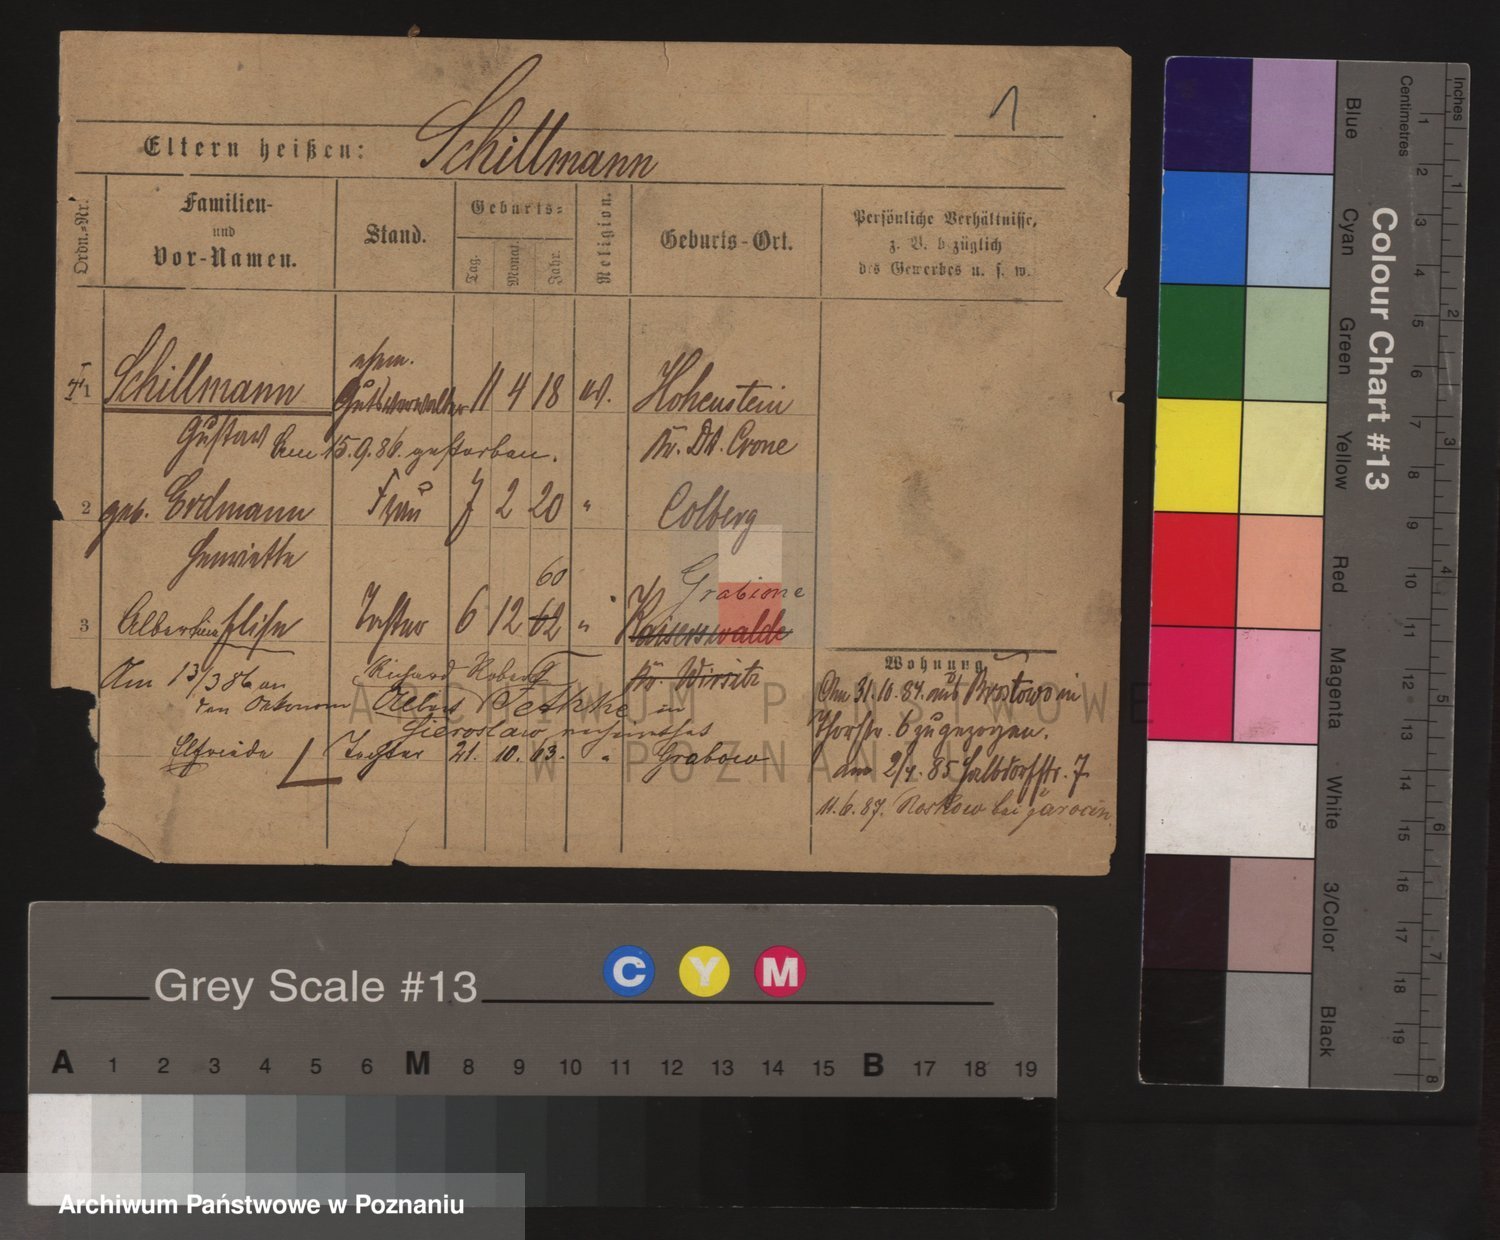 1
Eltern heißen: Schillmann
Ordn.=Nr.
Familien-
und
Vor-Namen.
Stand.
Geburts=
Tag.
Monat.
Jahr.
Religion.
Geburts-Ort.
Persönliche Verhältnisse,
z. B. bezüglich
des Gewerbes u. s. w.
1 Schillmann ehem. Gutsverwalter 11 4 18 ev. Hohenstein
Gustav Am 15.9.86. gestorben. Kr. Dt. Crone
2 geb. Erdmann Frau 7 2 20 " Colberg
Henriette
60
Grabione
3 Albertine Elise Tochter 6 12 62 " Kaiserswalde
Am 13/3 86 an Richard Robert Kr. Wirsitz
den Oekonom Albert Bethke in
Elfriede Tochter 21. 10. 63. " Grabow
Wohnung
Am 31.10.84. aus Brostowo in
Thorstr. 6 zugezogen.
am 2/4. 85 Halbdorfstr. 7.
11.6.87. Roskow bei Jarocin
ARCHIWUM PAŃSTWOWE
W POZNANIU
Grey Scale #13
C Y M
A 1 2 3 4 5 6 M 8 9 10 11 12 13 14 15 B 17 18 19
Archiwum Państwowe w Poznaniu
Colour Chart #13
Blue
Cyan
Green
Yellow
Red
Magenta
White
3/Color
Black
Centimetres
1 2 3 4 5 6 7 8 9 10 11 12 13 14 15 16 17 18 19
Inches
1 2 3 4 5 6 7 8